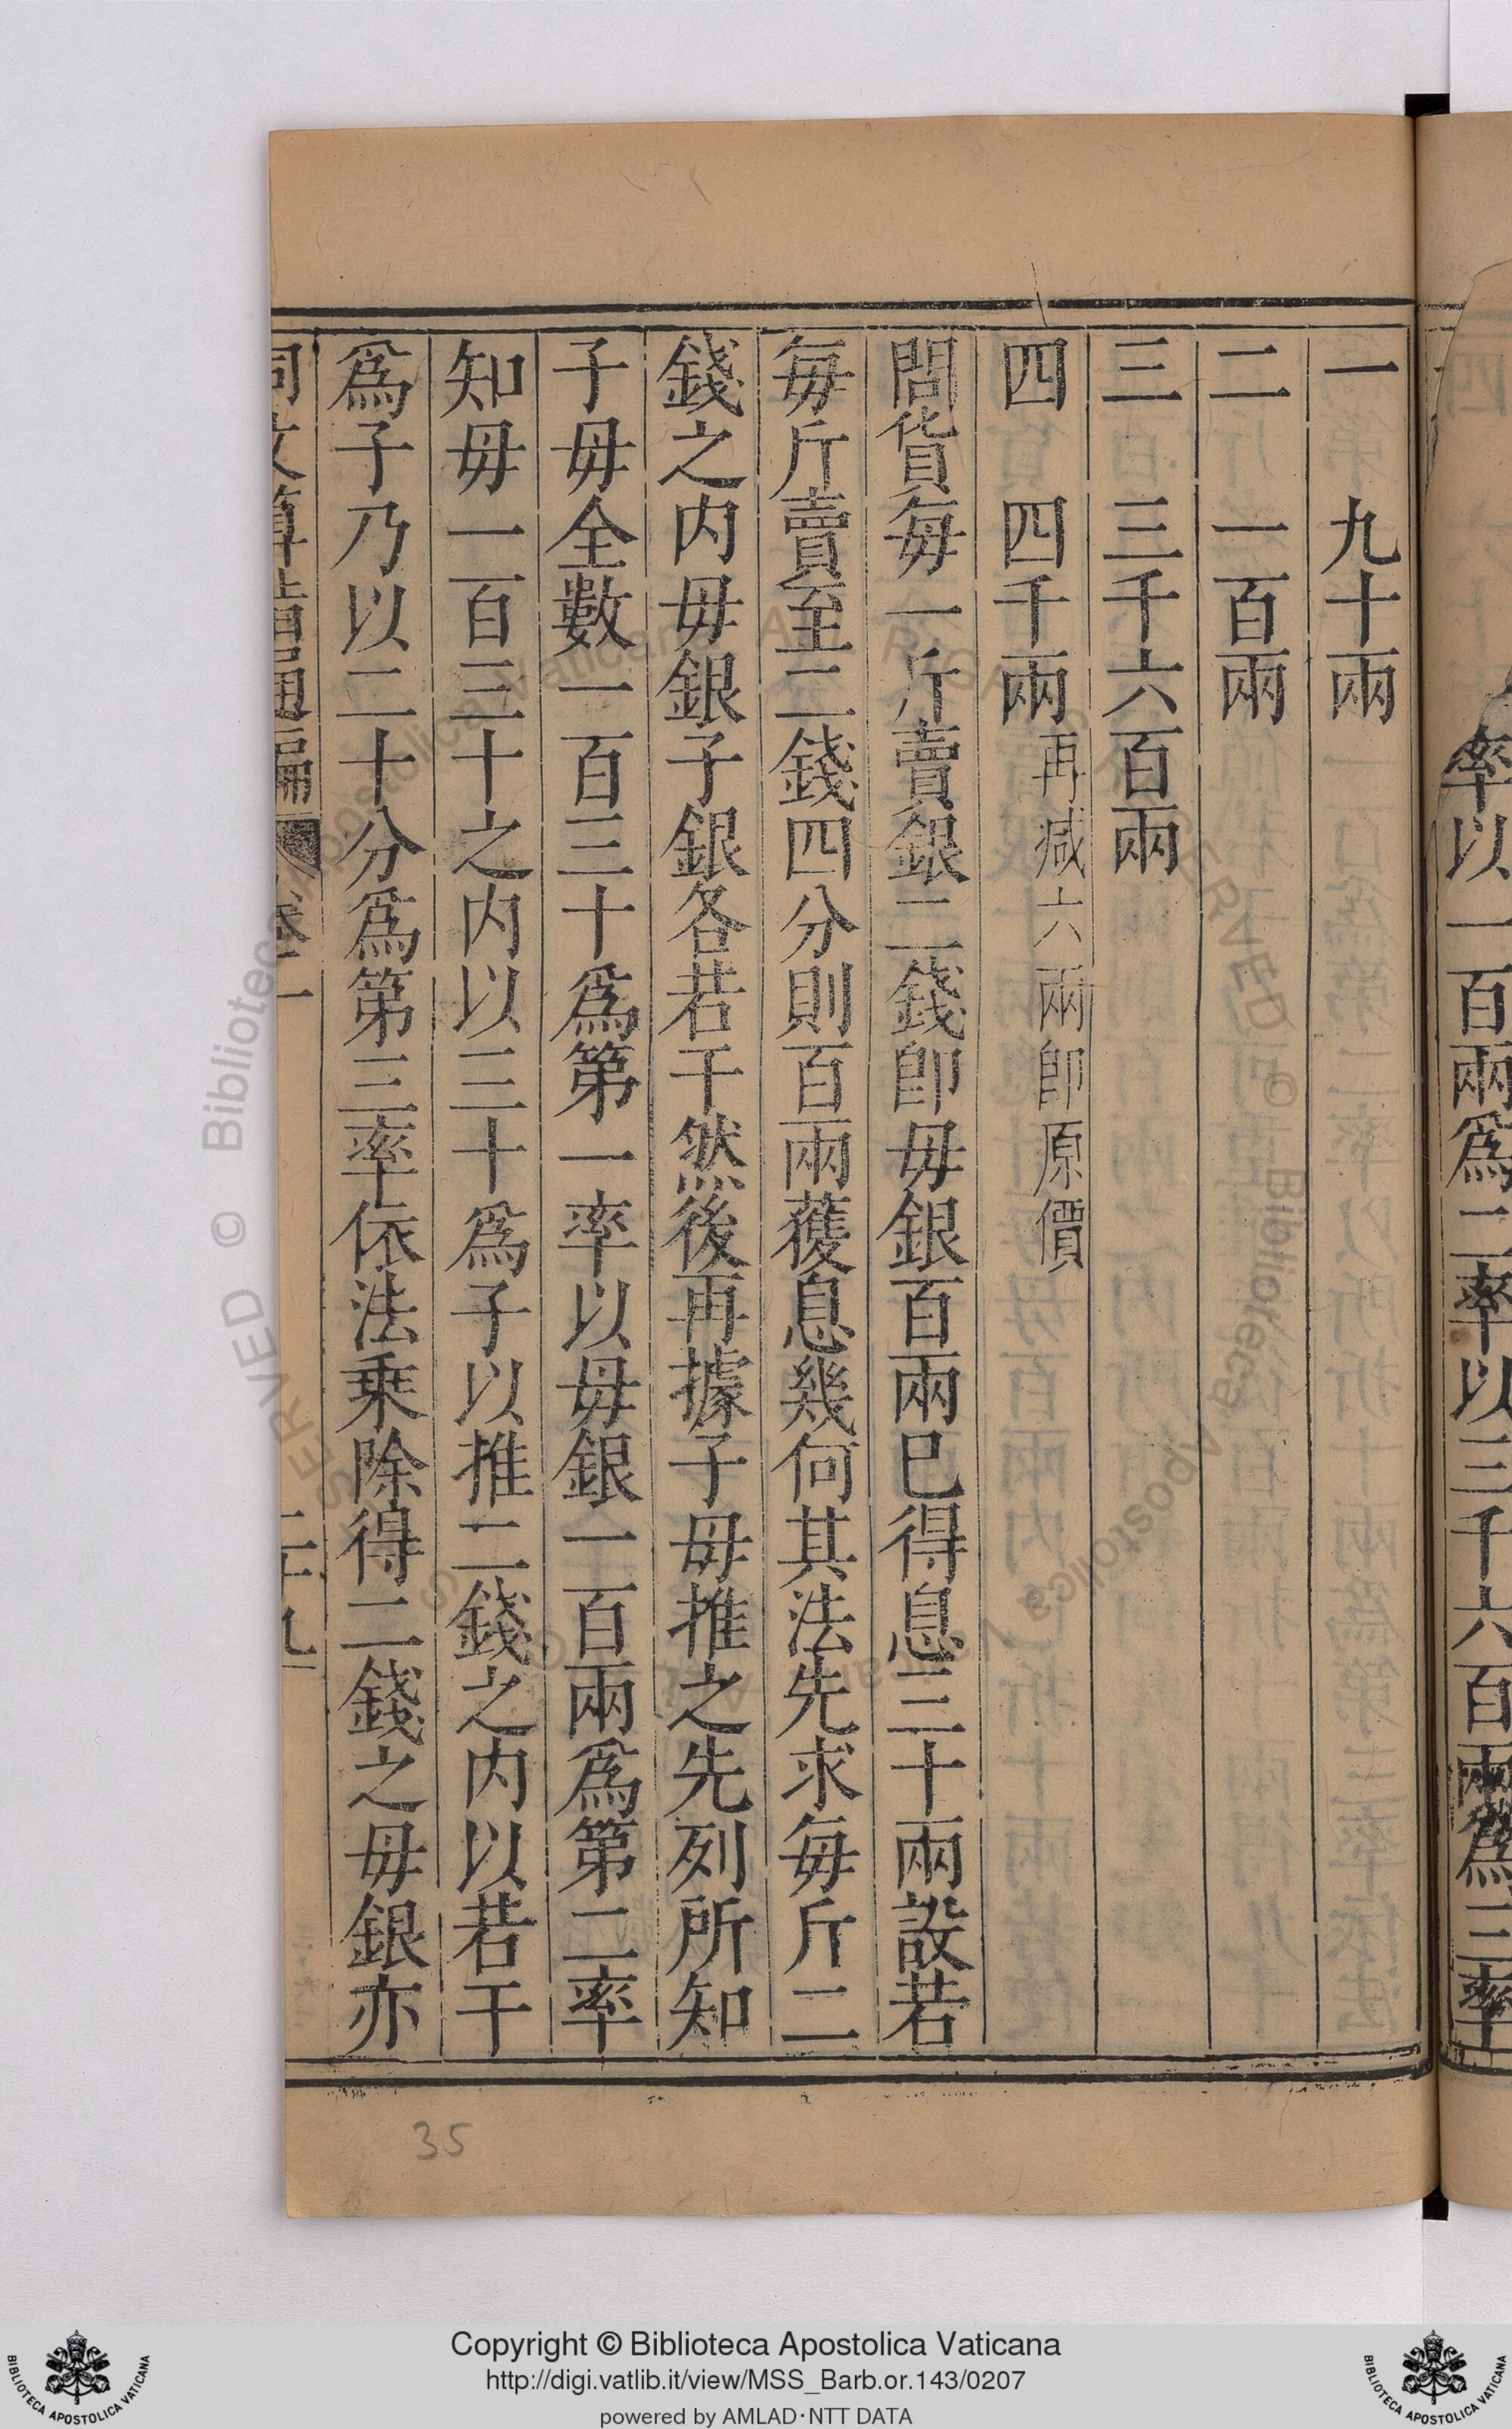 率以一百兩爲二率以三千六百兩爲三率
一　九十兩
二　一百兩
三　三千六百兩
四　四千兩再减六兩卽原價
問貨每一斤賣銀二錢卽母銀百兩已得息三十兩設若
每斤賣至二錢四分則百兩獲息幾何其法先求每斤二
錢之内母銀子銀各若干然後再據子母推之先列所知
子母全數一百三十爲第一率以母銀一百兩爲第二率
知母一百三十之内以三十爲子以推二錢之内以若干
爲子乃以二十分爲第三率依法乘除得二錢之母銀亦
同文算指通編 卷二 二十九
35
Copyright © Biblioteca Apostolica Vaticana
http://digi.vatlib.it/view/MSS_Barb.or.143/0207
powered by AMLAD·NTT DATA
BIBLIOTECA APOSTOLICA VATICANA
BIBLIOTECA APOSTOLICA VATICANA